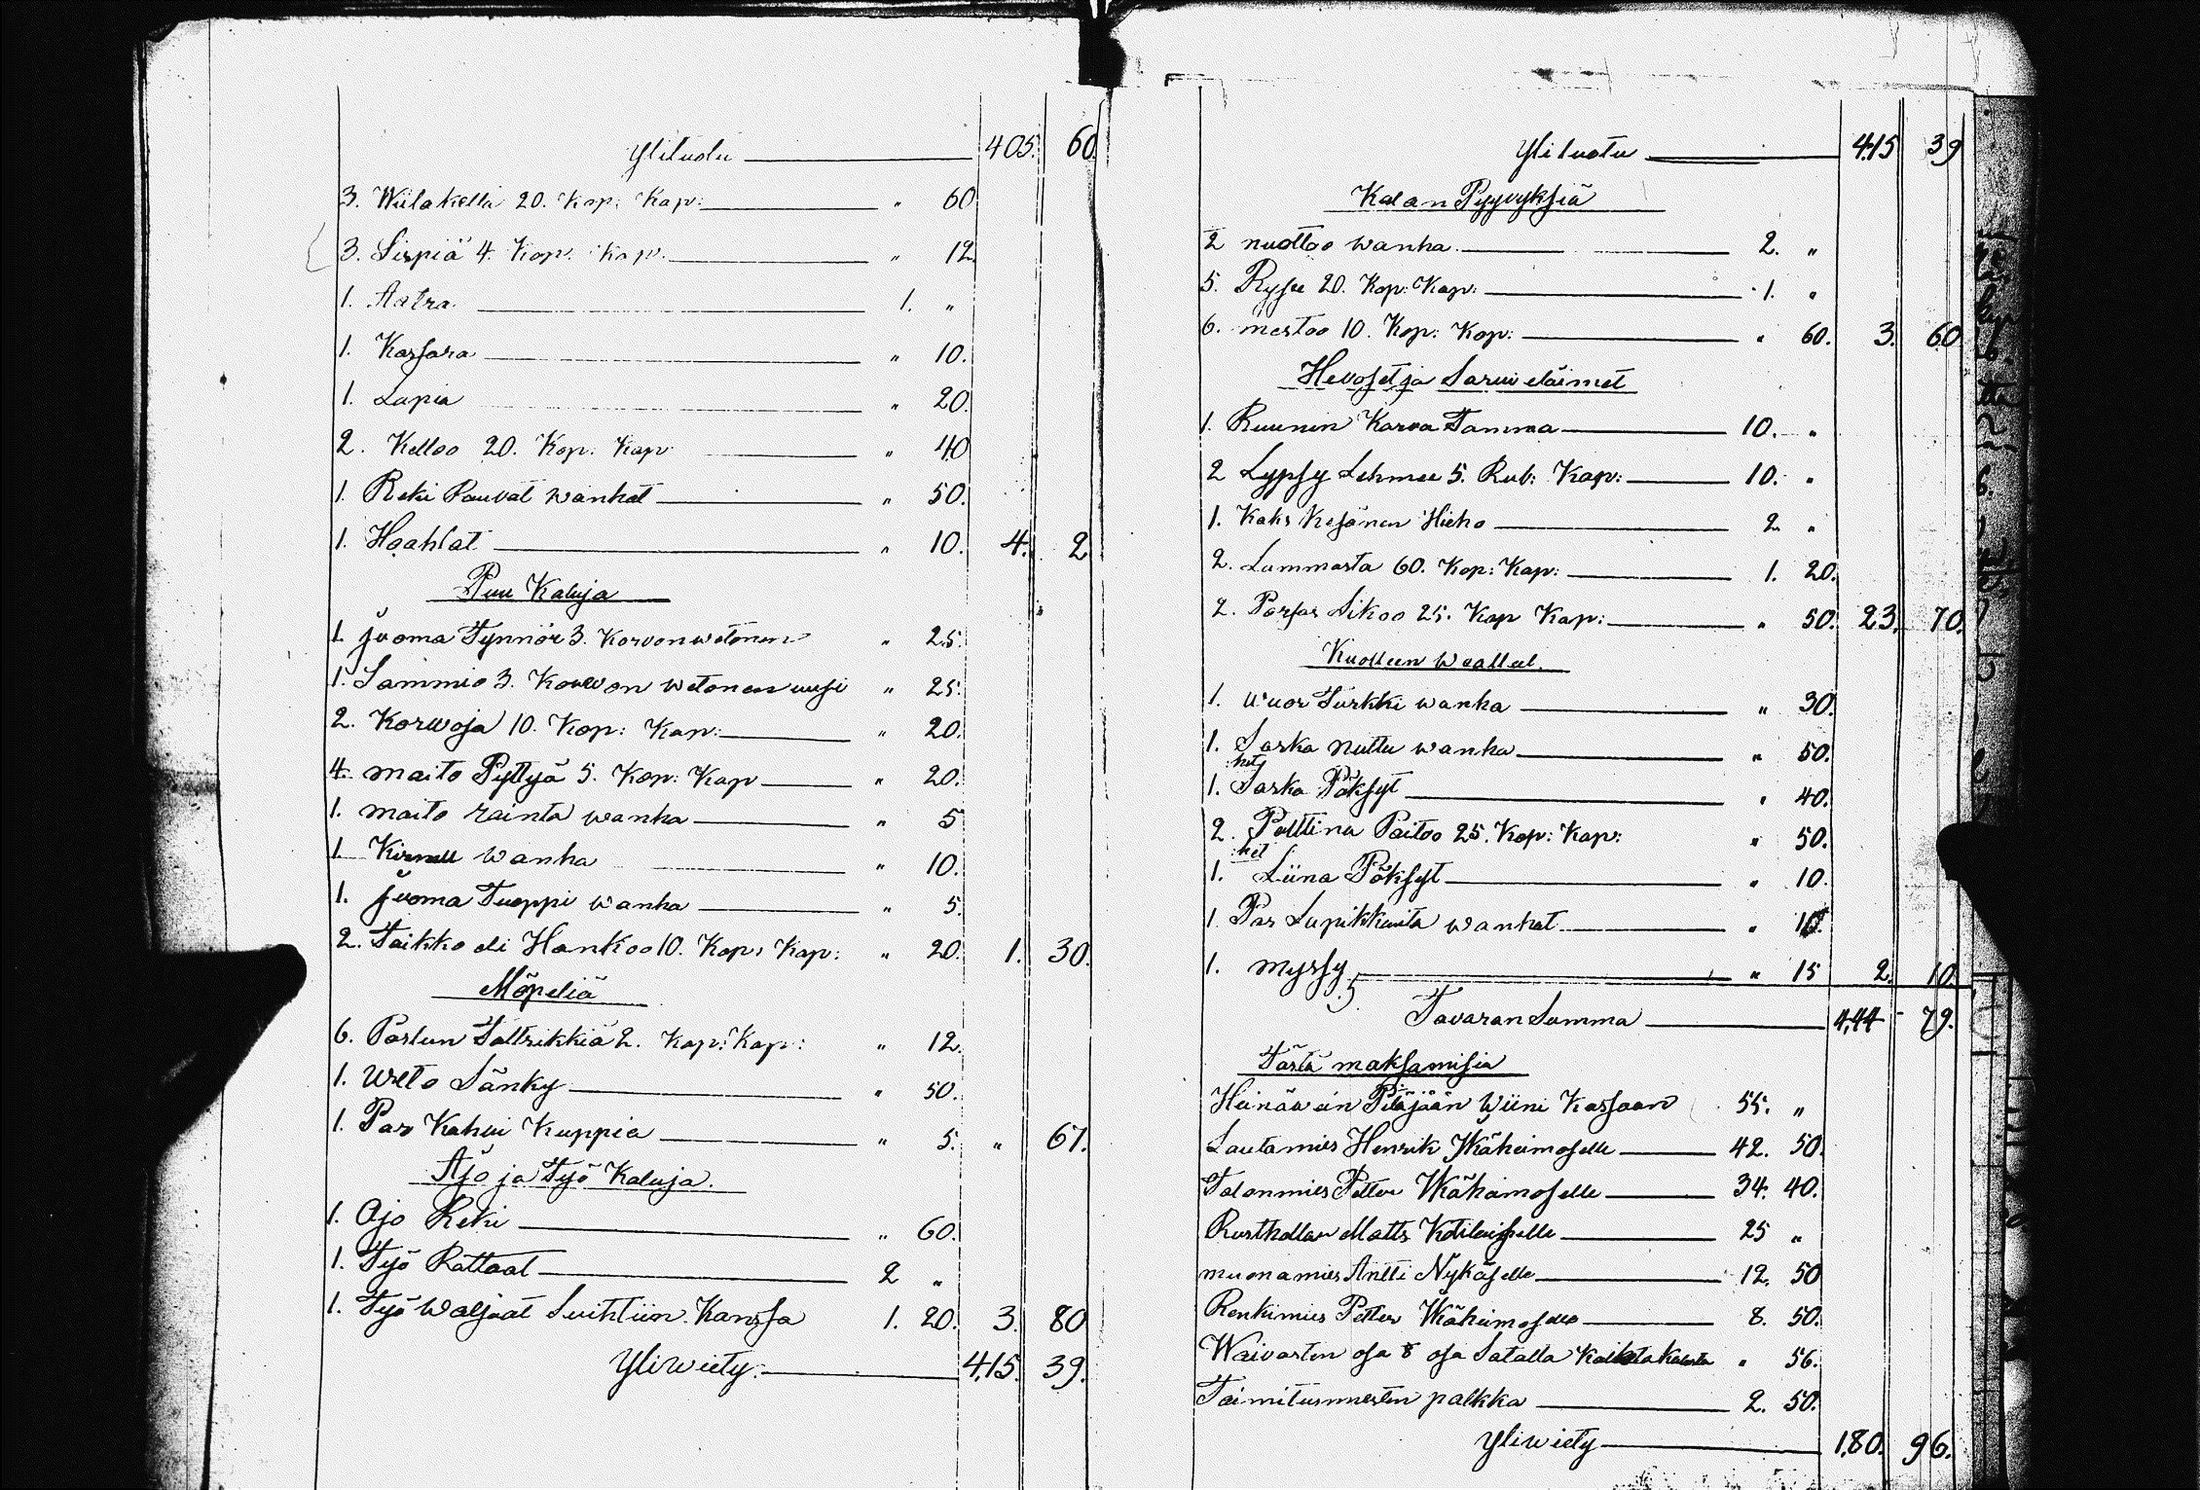 Ylituotu 405. 60
3. Wiilakellä 20. Kop: Kap: " 60
3. Sirpiä 4. Kop: Kap. " 12.
1. Aatra. 1. "
1. Kassara " 10.
1. Lapia " 20.
2. Kelloo 20. Kop: Kap " 40
1. Reki Rauvat wanhat " 50.
1. Haahlat " 10. 4. 2
Puu Kaluja
1. juoma Tynnör 3. Korvon wetonen " 25.
1. Sammio 3. Korwon wetonen uusi " 25.
2. Korwoja 10. Kop: Kap: " 20.
4. maito Pyttyä 5. Kop: Kap " 20.
1. maito rainta wanha " 5
1. Kirnu wanha " 10.
1. juoma Tuoppi wanha " 5.
2. Taikko eli Hankoo 10. Kop: Kap: " 20. 1. 30.
Möpeliä
6. Paslun Taltrikkiä 2. Kop: Kap: " 12.
1. Weto Sänky " 50.
1. Par Kahwi Kuppia " 5. " 67.
Ajo ja Työ Kaluja.
1. Ajo Reki " 60.
1. Työ Rattaat 2 "
1. Työ Waljaat Suihtiin Kanssa 1. 20. 3. 80
Yliwiety. 415. 39.
Ylituotu 415 39
Kalan Pyyvyksiä
2 nuottoo wanha. 2. "
5. Rysee 20. Kop: Kap: 1. "
6. mertoo 10. Kop: Kop: " 60. 3. 60
Hevoset ja Sarwi eläimet
1. Ruunin Karva Tamma 10. "
2 Lypsy Lehmee 5. Rub: Kap: 10. "
1. Kaks Kesänen Hieho 2 "
2. Lammasta 60. Kop: Kap: 1. 20.
2. Porsas Sikoo 25. Kop Kap: " 50. 23. 70.
Kuolleen Waatteet.
1. Wuor Turkki wanha " 30.
1. Sarka Nuttu wanha " 50.
1. het Sarka Pöksyt " 40.
2. Palttina Paitoo 25. Kop: Kap: " 50.
1. het Liina Pöksyt " 10.
1 Par Lapikkaita wanhat " 10.
1. Myssy " 15 2. 10.
Tavaran Summa 444 79.
Tästä maksamisia
Heinäwein Pitäjään Wiini Kassaan 55. "
Lautamies Henrik Wäheimoselle 42. 50.
Talonmies Petter Wäheimoselle 34. 40.
Rusthollar Matts Kotilaiselle 25 "
muonamies Antti Nykäselle 12. 50
Renkimies Petter Wäheimoselle 8. 50.
Waivasten osa 8 osa Satalla Kaikista Kalusta " 56.
Toimitusmiesten palkka 2. 50.
Yliwiety 180. 96.